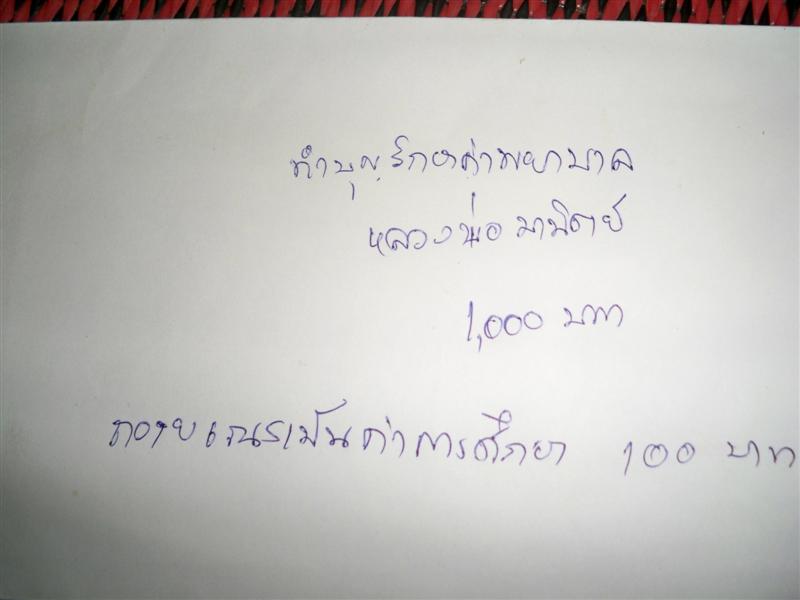 ทำบุญรักษาค่าพยาบาล
หลวงพ่อ มานิตย์
1,000 บาท
ถวายเณรเป็นค่าการศึกษา 100 บาท